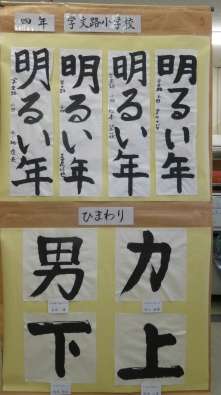 四年 学文路小学校
明るい年
明るい年
明るい年
明るい年
ひまわり
力
男
上
下